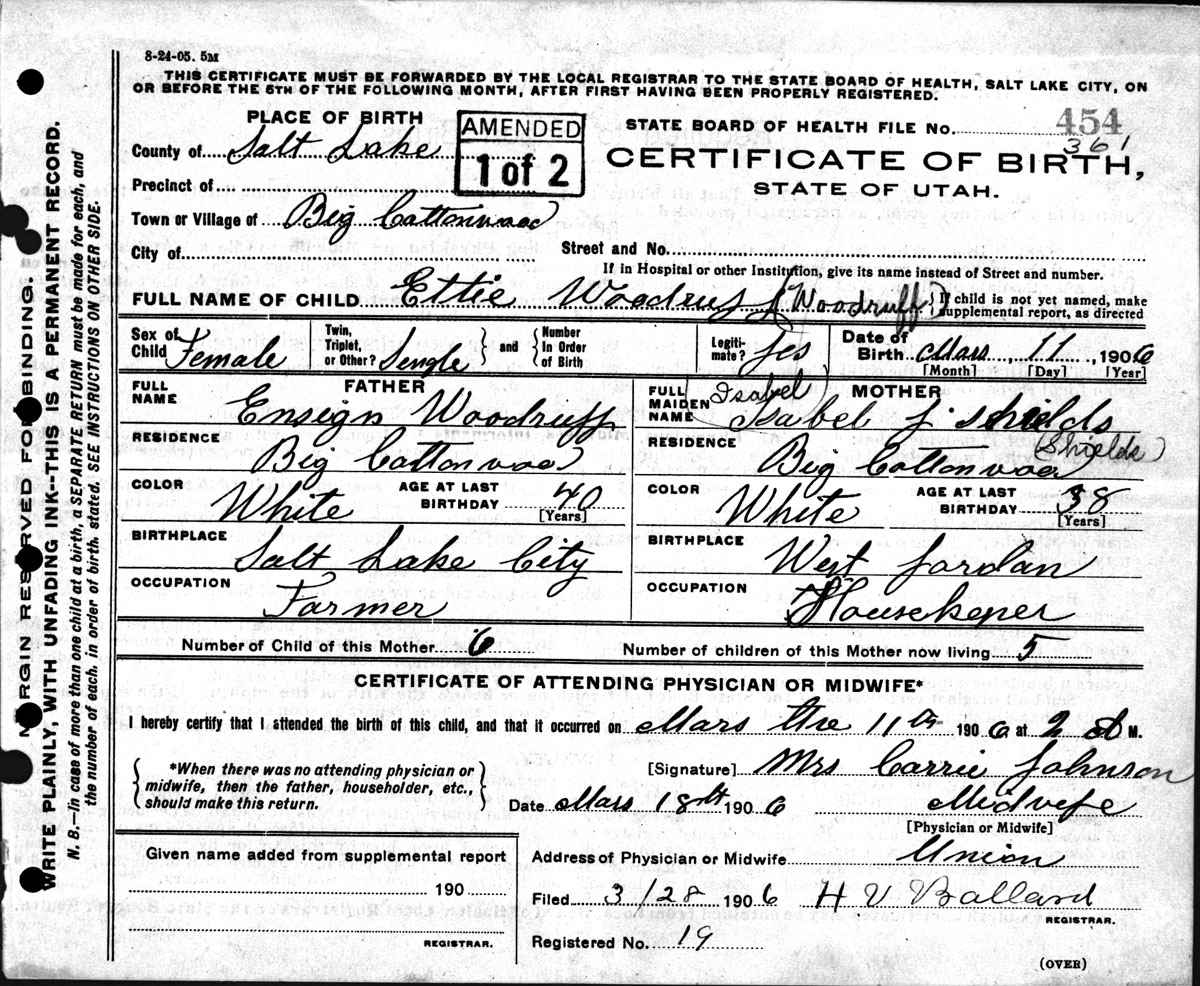 8-24-05. 5M
THIS CERTIFICATE MUST BE FORWARDED BY THE LOCAL REGISTRAR TO THE STATE BOARD OF HEALTH, SALT LAKE CITY, ON
OR BEFORE THE 5TH OF THE FOLLOWING MONTH, AFTER FIRST HAVING BEEN PROPERLY REGISTERED.
PLACE OF BIRTH
AMENDED
1 of 2
STATE BOARD OF HEALTH FILE No. 454
361
County of Salt Lake
CERTIFICATE OF BIRTH,
STATE OF UTAH.
Precinct of
Town or Village of Big Cottonwood
City of
Street and No.
If in Hospital or other Institution, give its name instead of Street and number.
FULL NAME OF CHILD Ettie Woodruf (Woodruff) { If child is not yet named, make
supplemental report, as directed
Sex of Child Female
Twin, Triplet, or Other? Sengle } and { Number In Order of Birth
Legiti-mate? Jes
Date of Birth Mars, 11, 1906
[Month] [Day] [Year]
FATHER
FULL NAME Ensign Woodruff
RESIDENCE Big Cottonwood
COLOR White
AGE AT LAST BIRTHDAY 40
[Years]
BIRTHPLACE Salt Lake City
OCCUPATION Farmer
MOTHER
FULL MAIDEN NAME (Isabel) Isabel J Shields
(Shields)
RESIDENCE Big Cottonwood
COLOR White
AGE AT LAST BIRTHDAY 38
[Years]
BIRTHPLACE West Jordan
OCCUPATION Housekeper
Number of Child of this Mother 6
Number of children of this Mother now living 5
CERTIFICATE OF ATTENDING PHYSICIAN OR MIDWIFE*
I hereby certify that I attended the birth of this child, and that it occurred on Mars the 11th 1906 at 2 A M.
{ *When there was no attending physician or
midwife, then the father, householder, etc.,
should make this return. }
[Signature] Mrs Carrie Johnson
Date Mars 18th 1906
Midvefe
[Physician or Midwife]
Given name added from supplemental report
190
REGISTRAR.
Address of Physician or Midwife Union
Filed 3/28 1906 H V Ballard
REGISTRAR.
Registered No. 19
(OVER)
MARGIN RESERVED FOR BINDING.
WRITE PLAINLY, WITH UNFADING INK--THIS IS A PERMANENT RECORD.
N. B.—In case of more than one child at a birth, a SEPARATE RETURN must be made for each, and
the number of each, in order of birth, stated. SEE INSTRUCTIONS ON OTHER SIDE.